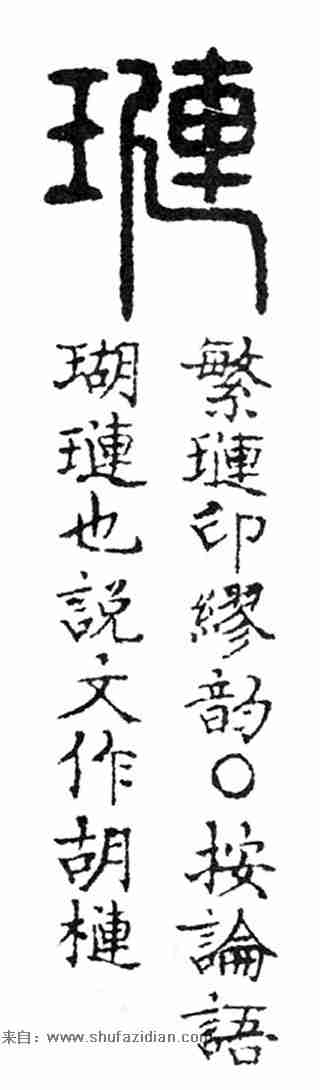 璉
繁璉印繆韵○按論語
瑚璉也說文作胡槤
来自：www.shufazidian.com